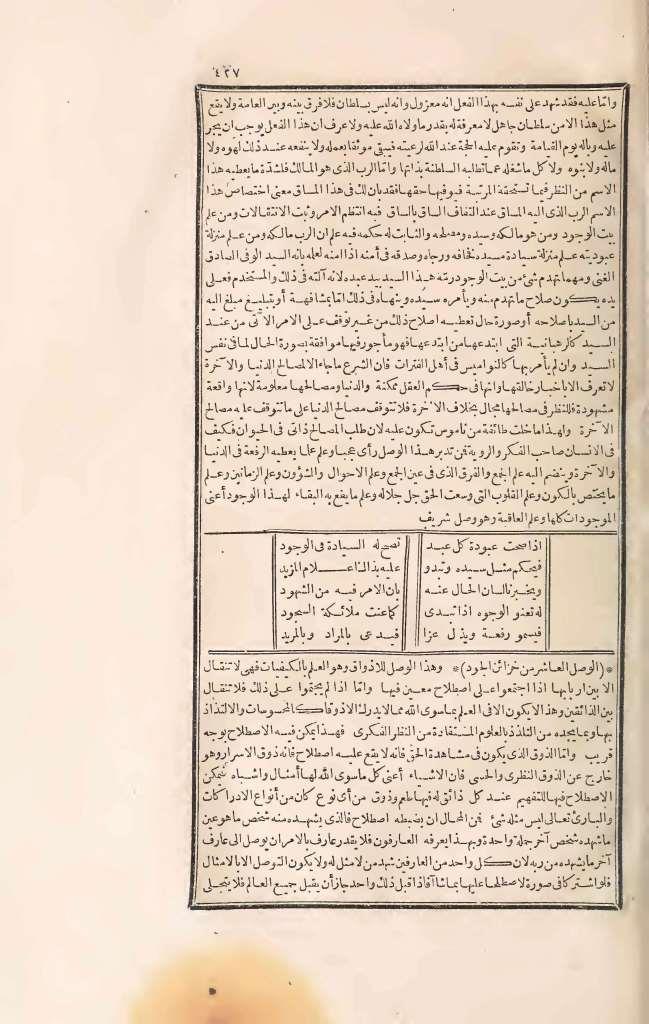 ٤٢٧
واما عليه فقد شهد على نفسه بهذا الفعل انه معزول وانه ليس بسلطان فلا فرق بينه وبين العامة ولا يقع
مثل هذا الا من سلطان جاهل لا معرفة له بقدر ما ولاه الله عليه ولا عرف ان هذا الفعل يوجب ان يجر
عليه وباله يوم القيامة وتقوم عليه الحجة عند الله لرعيته فيبقى موثقا بعمله ولا ينفعه عند ذلك لهوه ولا
ماله ولا بنوه ولا كل ما شغله عما تطلبه السلطنة بذاتها واما الرب الذى هو المالك فلشدة ما يعطيه هذا
الاسم من النظر فيما تستحقه المرتبة فيوفيها حقها فقد بان لك فى هذا المساق معنى اختصاص هذا
الاسم الرب الذى اليه المساق عند التفاف الساق بالساق فبه انتظم الامر وثبت الانتقالات ومن علم
بيت الوجود ومن هو مالكه وسيده ومصلحه والثابت له حكمه فيه علم ان الرب مالكه ومن علم منزلة
عبوديته علم منزلة سيادة سيده فخافه ورجاه وصدقه فى أمنه اذا امنه لعلمه بانه السيد الوفى الصادق
الغنى ومهما تهدم شئ من بيت الوجود رمته هذا السيد بيد عبده لانه آلته فى ذلك والمستخدم فعلى
يده يكون صلاح ما تهدم منه ويأمره سيده وينهاه فى ذلك اما بمشافهة أو بتبليغ مبلغ اليه
من السيد باصلاحه أو صورة حال تعطيه اصلاح ذلك من غير توقف على الامر الآتى من عند
السيد كالرهبانية التى ابتدعها من ابتدعها فهو مأجور فيها موافقة بصورة الحال لما فى نفس
السيد وان لم يأمر بها كالنواميس فى أهل الفترات فان الشرع ما جاء الا لمصالح الدنيا والآخرة
لا تعرف الا باخبار خالقها وانها فى حكم العقل ممكنة والدنيا ومصالحها معلومة لانها واقعة
مشهودة فللنظر فى مصالحها مجال بخلاف الآخرة فلا تتوقف مصالح الدنيا على ما تتوقف عليه مصالح
الآخرة ولهذا ما خلت طائفة من ناموس تكون عليه لان طلب المصالح ذاتى فى الحيوان فكيف
فى الانسان صاحب الفكر والروية فمن تدبر هذا الوصل رأى عجبا وعلم علما يعطيه الرفعة فى الدنيا
والآخرة وينضم اليه علم الجمع والفرق الذى فى عين الجمع وعلم الاحوال والشؤون وعلم الزمانين وعلم
ما يختص بالكون وعلم القلوب التى وسعت الحق جل جلاله وعلم ما يقع به البقاء لهذا الوجود أعنى
الموجودات كلها وعلم العاقبة وهو وصل شريف
اذا صحت عبودة كل عبد تصح له السيادة فى الوجود
فيحكم مثل سيده وتبدو عليه بذا لنا علام المزيد
ويخبرنا لسان الحال عنه بان الامر فيه من الشهود
له تعنو الوجوه اذا تبدى كما عنت ملائكة السجود
فيسمو رفعة ويذل عزا فيدعى بالمراد وبالمريد
*(الوصل العاشر من خزائن الجود)* وهذا الوصل للاذواق وهو العلم بالكيفيات فهى لا تنقال
الا بين اربابها اذا اجتمعوا على اصطلاح معين فيها واما اذا لم يجتمعوا على ذلك فلا تنقال
بين الذائقين وهذا لا يكون الا فى العلم بما سوى الله مما لا يدرك الا ذوقا كالمحسوسات والالتذاذ
بها وبما يجده من التلذذ بالعلوم المستفادة من النظر الفكرى فهذا يمكن فيه الاصطلاح بوجه
قريب واما الذوق الذى يكون فى مشاهدة الحق فانه لا يقع عليه اصطلاح فانه ذوق الاسرار وهو
خارج عن الذوق النظرى والحسى فان الاشياء أعنى كل ما سوى الله لها أمثال واشباه فيمكن
الاصطلاح فيها للتفهيم عند كل ذائق له فيها طعم وذوق من أى نوع كان من أنواع الادراكات
والبارئ تعالى ليس مثله شئ فمن المحال ان يضبطه اصطلاح فالذى يشهده منه شخص ما هو عين
ما شهده شخص آخر جملة واحدة وبهذا يعرفه العارفون فلا يقدر عارف بالامر ان يوصل الى عارف
آخر ما يشهده من ربه لان كل واحد من العارفين شهد من لا مثل له ولا يكون التوصل الا بالامثال
فلو اشتركا فى صورة لاصطلحا عليها بما شاآ فاذا قبل ذلك واحد جاز أن يقبل جميع العالم فلا يتجلى